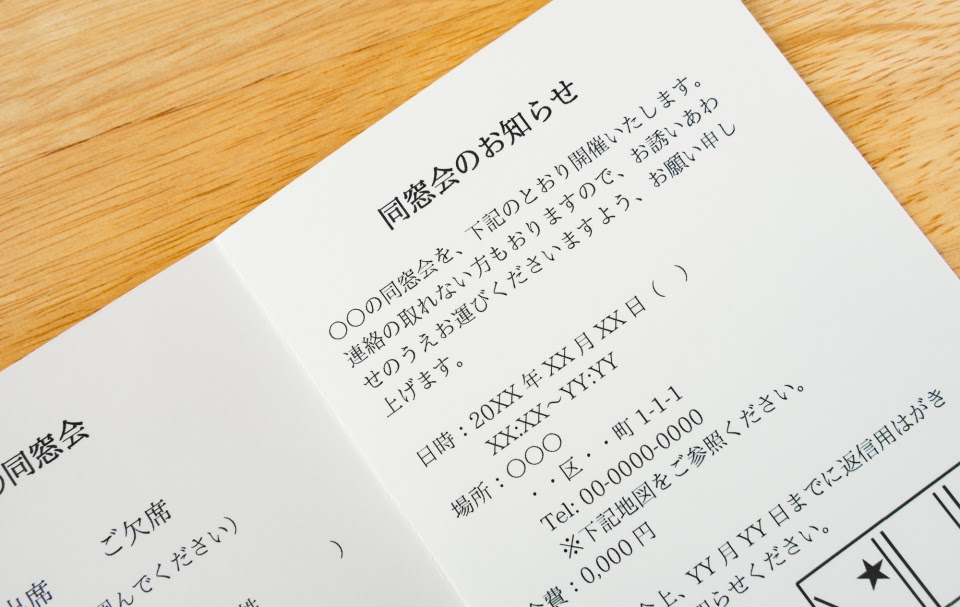 同窓会のお知らせ
〇〇の同窓会を、下記のとおり開催いたします。
連絡の取れない方もおりますので、お誘いあわ
せのうえお運びくださいますよう、お願い申し
上げます。
日時：20XX 年 XX 月 XX 日（　）
XX:XX～YY:YY
場所：〇〇〇
・・区・・町 1-1-1
Tel: 00-0000-0000
※下記地図をご参照ください。
費：0,000 円
上、YY 月 YY 日までに返信用はがき
らせください。
の同窓会
ご欠席
出席
んでください）
）